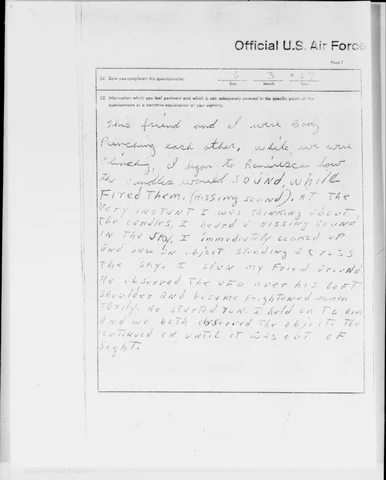 Official U.S. Air Force
Page 7
Date you completed this questionnaire:
6 3 67
Day Month Year
Information which you feel pertinent and which is not adequately covered in the specific points of the
questionnaire or a narrative explanation of your sighting.
This friend and I were Body
Punching each other, while we were
Clinching, I began to Reminisce how
the candles would SOUND, while
FIRED Them. (Hissing sound). AT the
Very INSTANT I was Thinking about
the candles, I heard a Hissing sound
IN the SKY. I immediately looked up
and saw an object streaking across
the sky. I spun my Friend around.
He observed the UFO over his left
shoulder and became Frightened momen
Tarily. He started run. I held on To him
and we both observed the object. The
continued on until it was out of
sight.